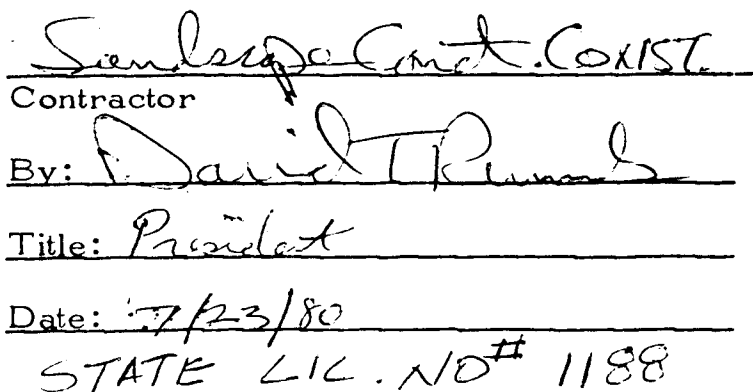 Landscape Const. CONST.
Contractor
By: David T
Title: President
Date: 7/23/80
STATE LIC. NO# 1188